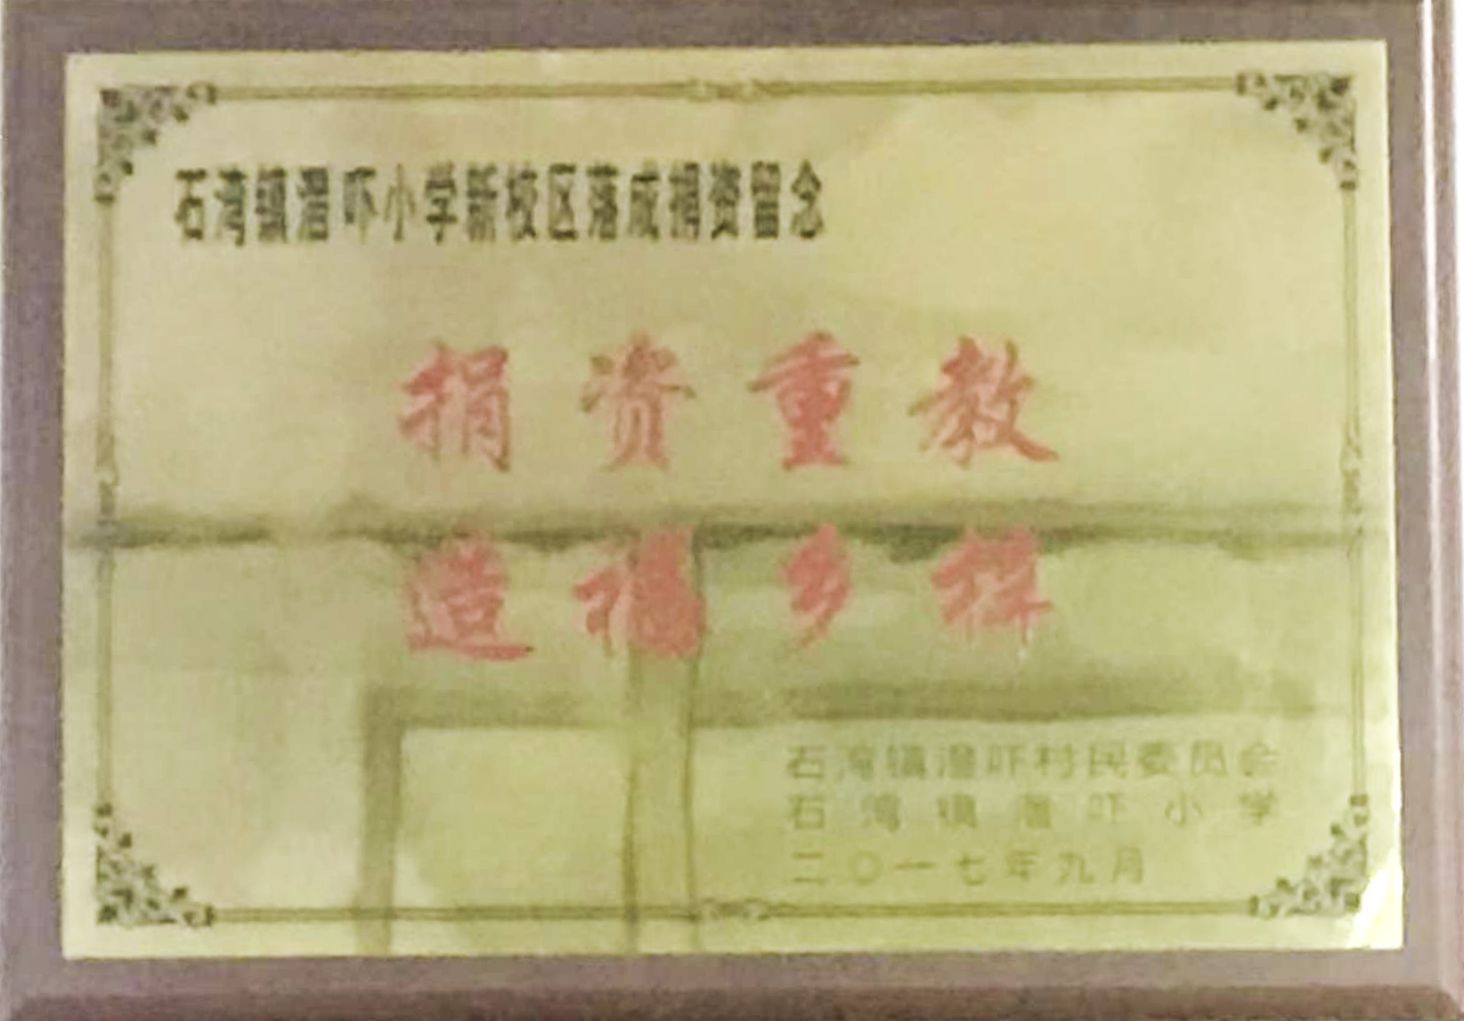 石湾镇滘吓小学新校区落成捐资留念
捐资重教
造福乡梓
石湾镇滘吓村民委员会
石湾镇滘吓小学
二〇一七年九月